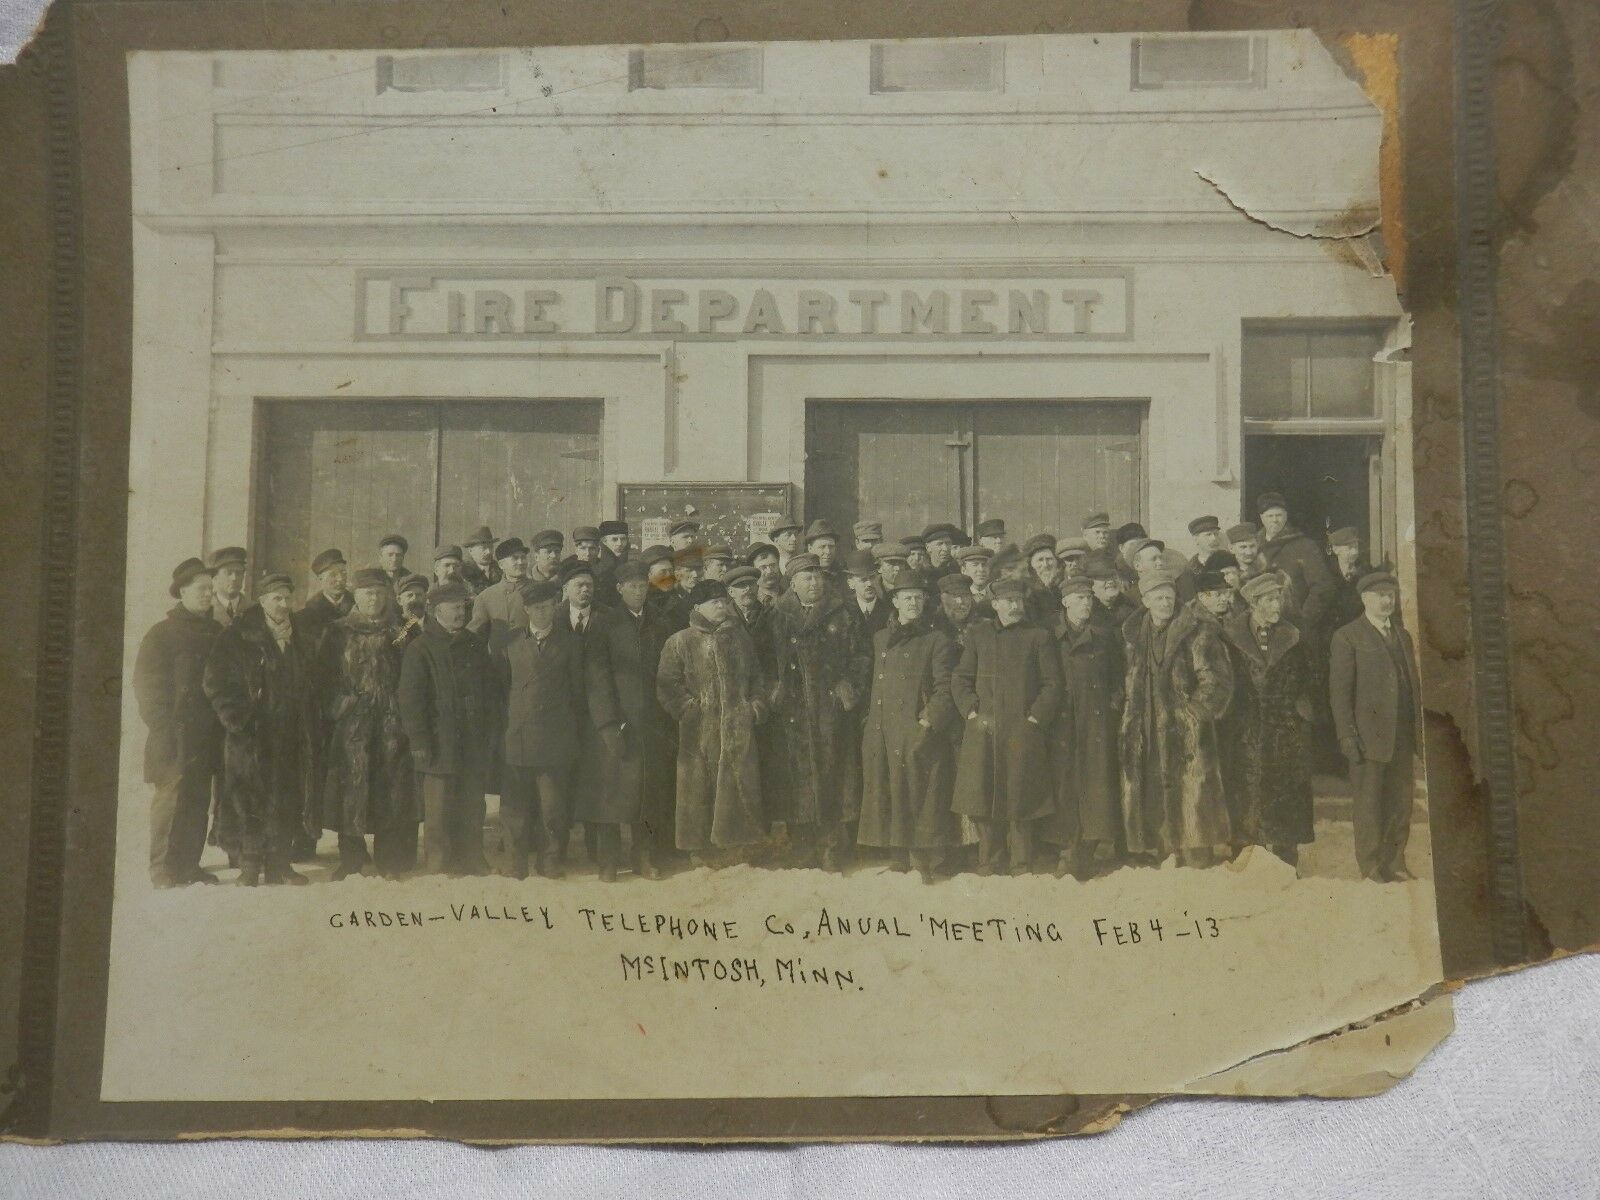 FIRE DEPARTMENT
GARDEN-VALLEY TELEPHONE Co, ANUAL 'MEETING FEB 4-'13
McINTOSH, MINN.